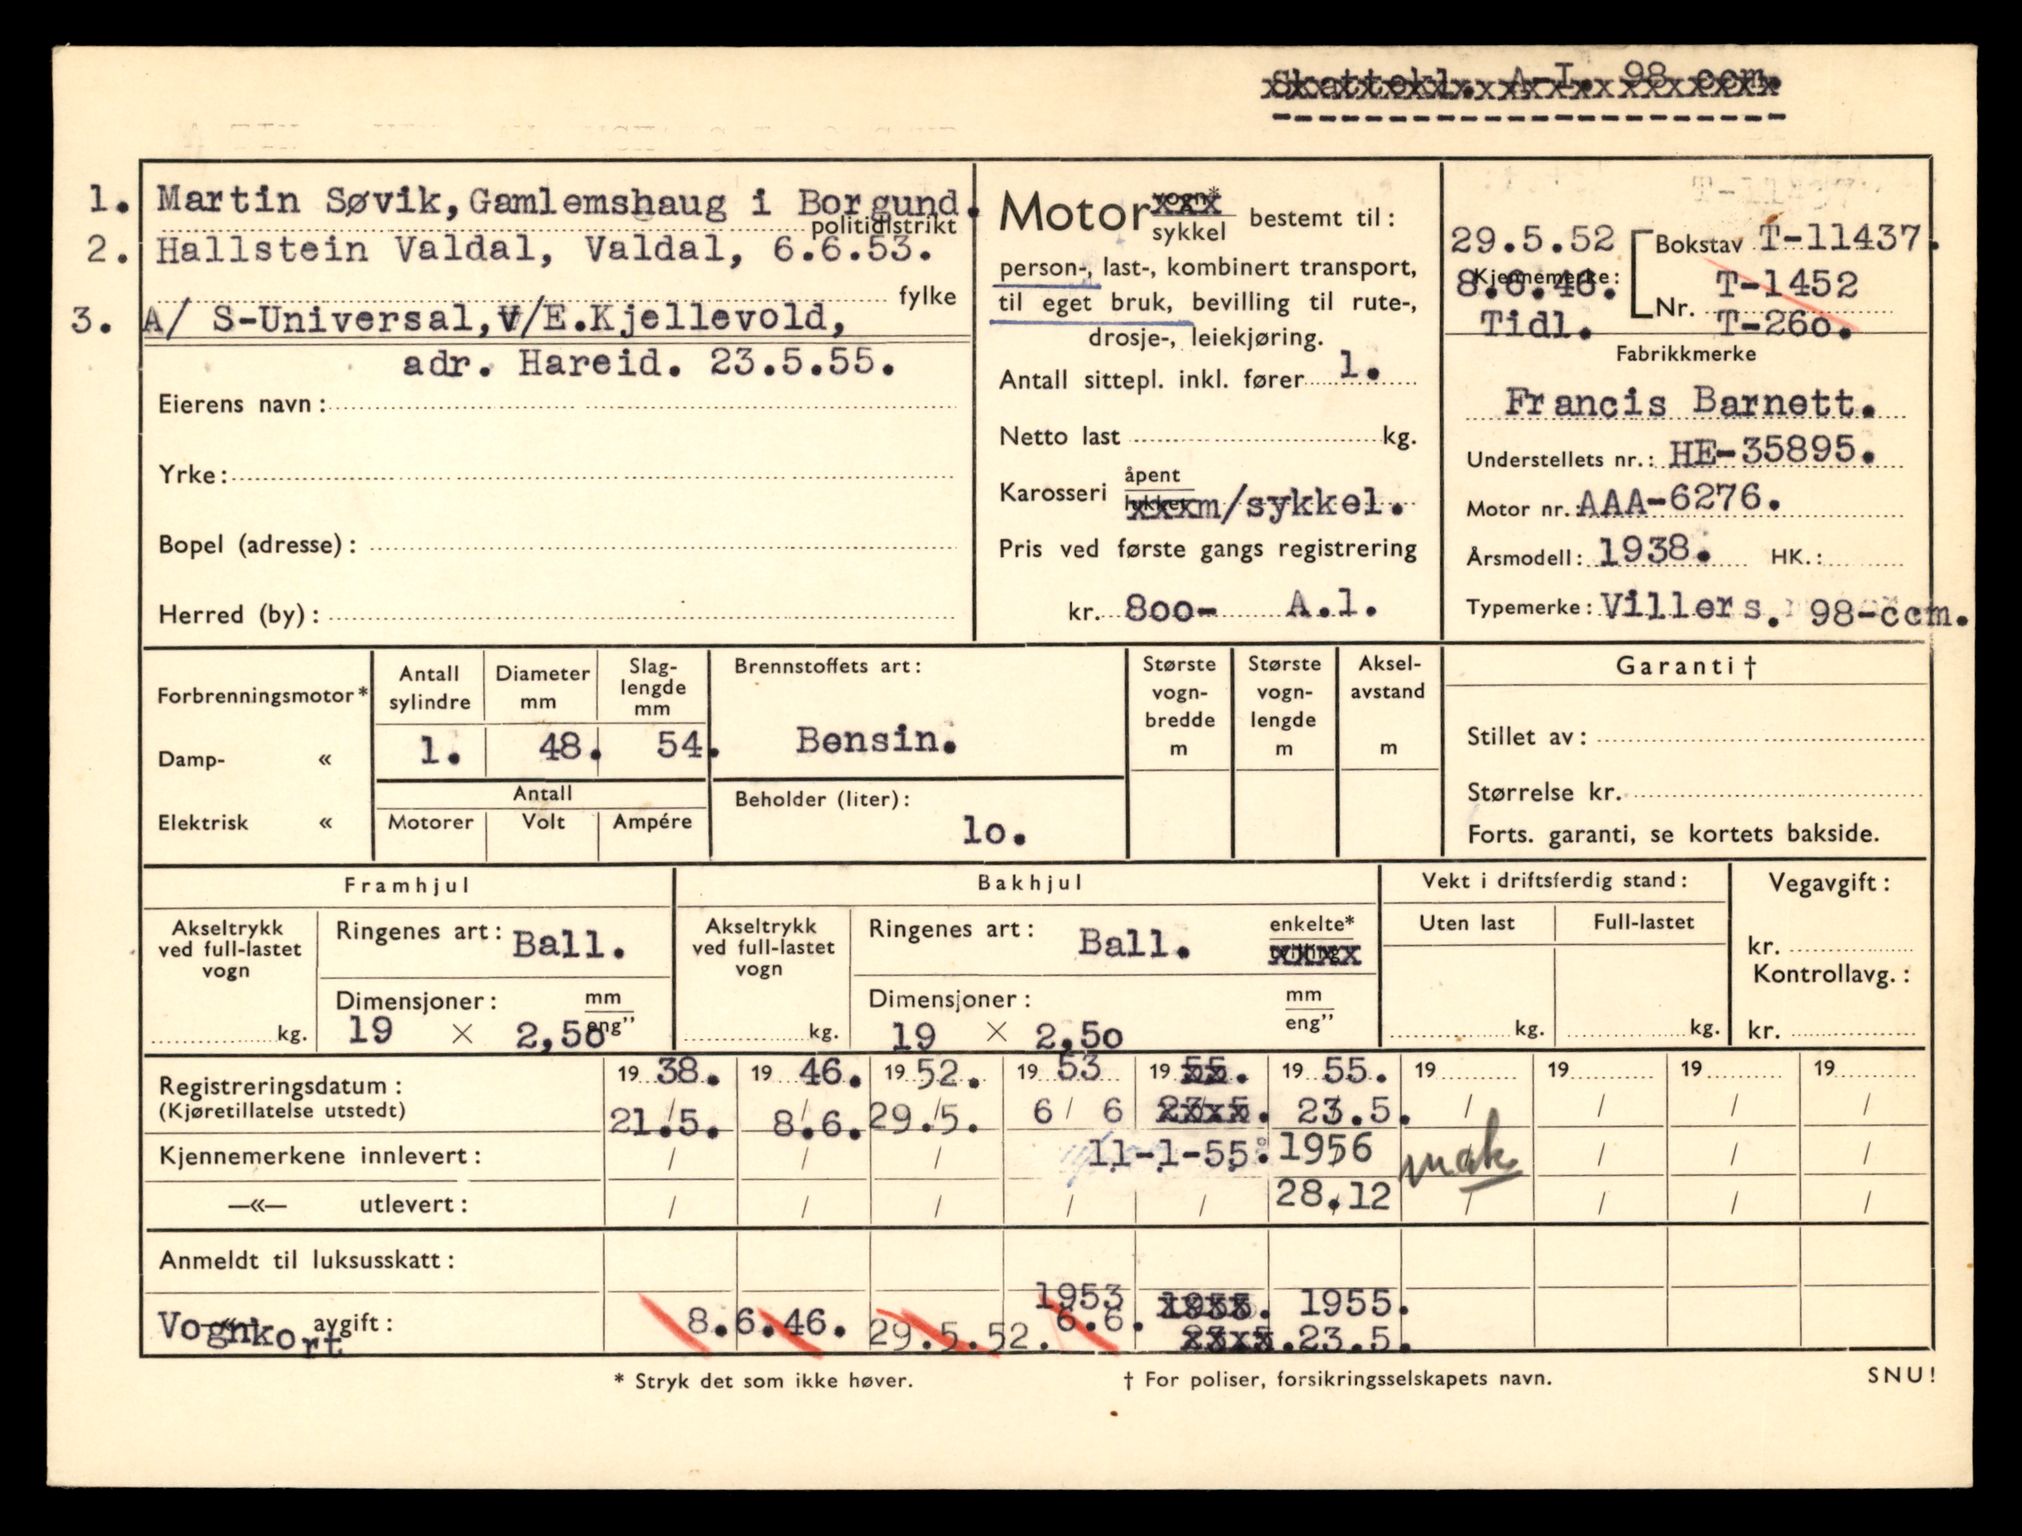 Skattekl. A-I. 98 ccm.
1. Martin Søvik, Gamlemshaug i Borgund.
politidistrikt
2. Hallstein Valdal, Valdal, 6.6.53.
fylke
3. A/ S-Universal, V/E.Kjellevold,
adr. Hareid. 23.5.55.
Eierens navn:
Yrke:
Bopel (adresse):
Herred (by):
Motor vogn* sykkel bestemt til:
person-, last-, kombinert transport,
til eget bruk, bevilling til rute-,
drosje-, leiekjøring.
Antall sittepl. inkl. fører 1.
Netto last kg.
Karosseri åpent lukket m/sykkel.
Pris ved første gangs registrering
kr. 800- A.l.
29.5.52 Bokstav T-11437.
Kjennemerke:
8.6.46. T-1452
Nr.
Tidl. T-26o.
Fabrikkmerke
Francis Barnett.
Understellets nr.: HE-35895.
Motor nr.: AAA-6276.
Årsmodell: 1938. HK.:
Typemerke: Villers. 98-ccm.
Forbrenningsmotor*
Damp- «
Elektrisk «
Antall sylindre
Diameter mm
Slaglengde mm
1. 48. 54.
Antall
Motorer Volt Ampére
Brennstoffets art:
Bensin.
Beholder (liter):
lo.
Største vogn-bredde m
Største vogn-lengde m
Aksel-avstand m
Garanti †
Stillet av:
Størrelse kr.
Forts. garanti, se kortets bakside.
Framhjul
Akseltrykk ved full-lastet vogn
kg.
Ringenes art: Ball.
Dimensjoner: mm eng”
19 × 2,50
Bakhjul
Akseltrykk ved full-lastet vogn
kg.
Ringenes art: Ball. enkelte* tvilling
Dimensjoner: mm eng”
19 × 2,5o
Vekt i driftsferdig stand:
Uten last Full-lastet
kg. kg.
Vegavgift:
kr.
Kontrollavg.:
kr.
Registreringsdatum: 19 38. 19 46. 19 52. 19 53 19 55. 19 55. 19 19 19 19
(Kjøretillatelse utstedt) 21.5. 8.6. 29.5. 6 / 6 23.5. 23.5. / / / /
Kjennemerkene innlevert: / / / 11-1-55: 1956 mak / / /
—«— utlevert: / / / / / 28.12 / / / /
Anmeldt til luksusskatt:
1953 1955. 1955.
Vognkort —«— avgift: 8.6.46. 29.5.52. 6.6. 23.5. 23.5.
* Stryk det som ikke høver.
† For poliser, forsikringsselskapets navn.
SNU!